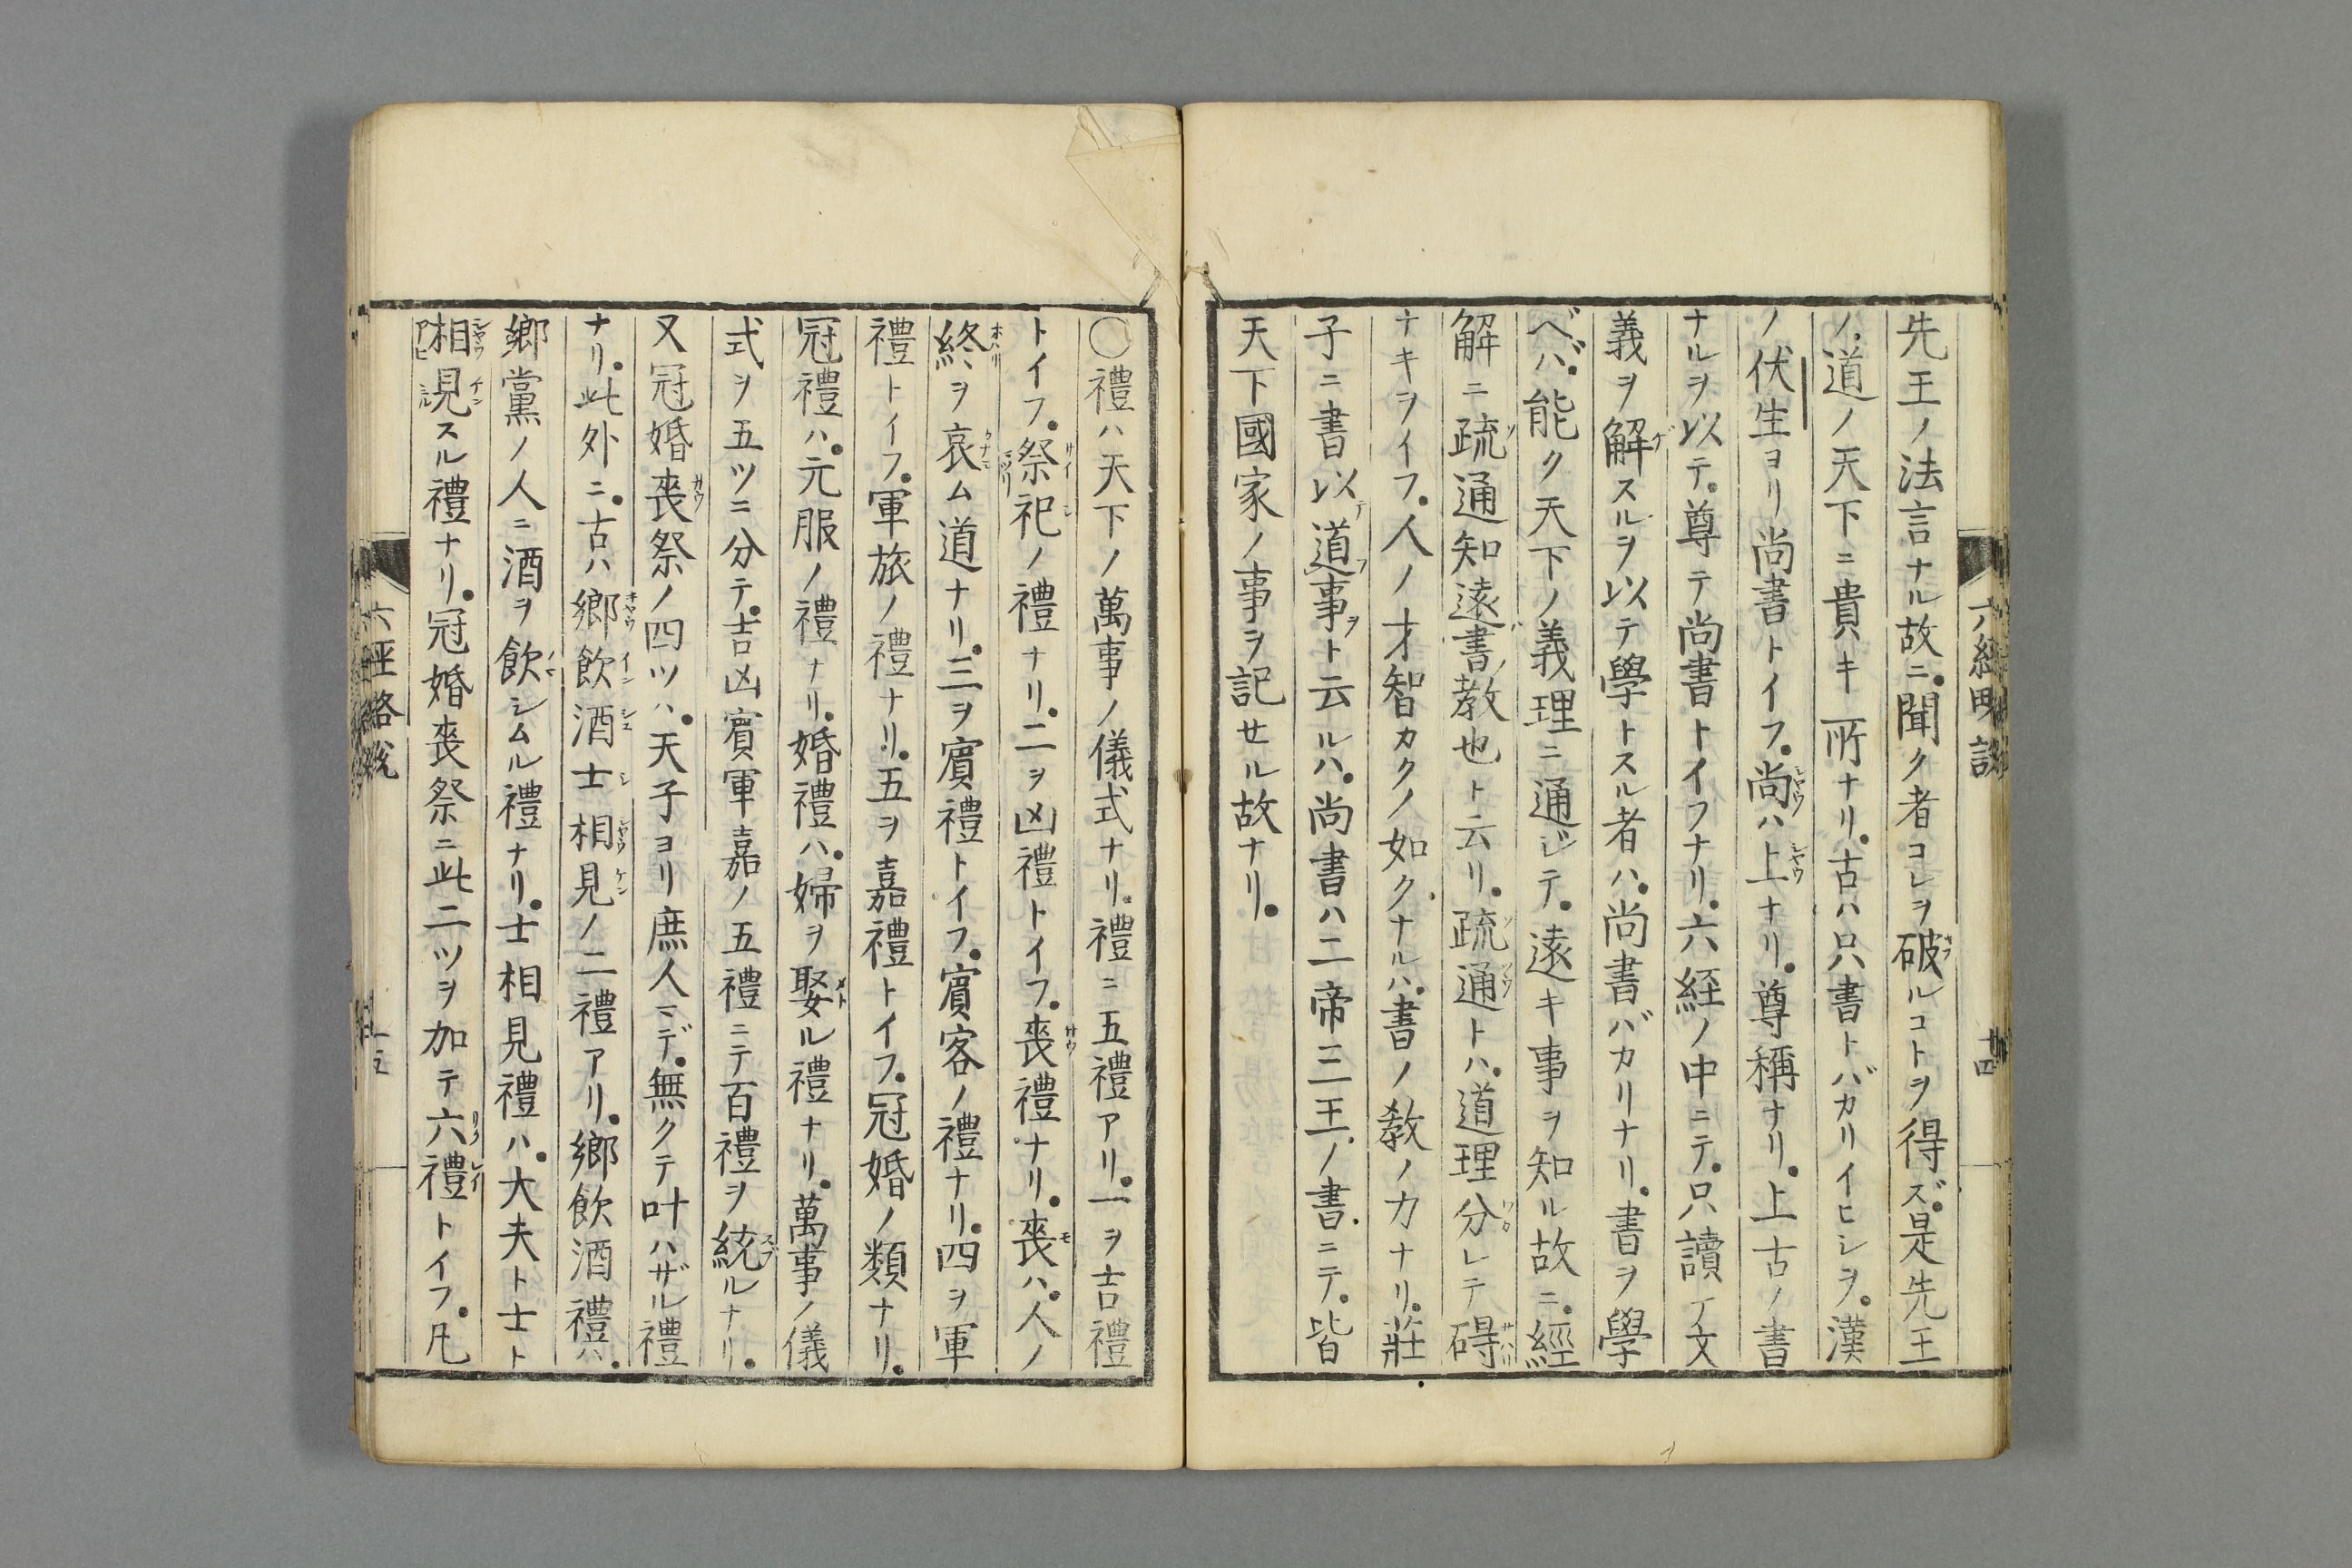 先王ノ法言ナル故ニ。聞ク者コレヲ破ルコトヲ得ズ。是先王
ノ道ノ天下ニ貴キ所ナリ。古ハ只書トバカリイヒシヲ。漢
ノ伏生ヨリ尚書トイフ。尚ハ上ナリ。尊稱ナリ。上古ノ書
ナルヲ以テ。尊テ尚書トイフナリ。六経ノ中ニテ。只讀テ文
義ヲ解スルヲ以テ學トスル者ハ。尚書バカリナリ。書ヲ學
ベバ。能ク天下ノ義理ニ通ジテ。遠キ事ヲ知ル故ニ。經
解ニ疏通知遠書教也ト云リ。疏通トハ。道理分レテ碍
ナキヲイフ。人ノ才智カクノ如クナルハ。書ノ教ノ力ナリ。莊
子ニ書以道事ヲト云ルハ。尚書ハ二帝三王ノ書ニテ。皆
天下國家ノ事ヲ記セル故ナリ。
六經略說
十四
〇禮ハ天下ノ萬事ノ儀式ナリ。禮ニ五禮アリ。一ヲ吉禮
トイフ。祭祀ノ禮ナリ。二ヲ凶禮トイフ。喪禮ナリ。喪ハ。人ノ
終ヲ哀ム道ナリ。三ヲ賓禮トイフ。賓客ノ禮ナリ。四ヲ軍
禮トイフ。軍旅ノ禮ナリ。五ヲ嘉禮トイフ。冠婚ノ類ナリ。
冠禮ハ。元服ノ禮ナリ。婚禮ハ。婦ヲ娶ル禮ナリ。萬事ノ儀
式ヲ五ツニ分テ。吉凶賓軍嘉ノ五禮ニテ百禮ヲ統ルナリ。
又冠婚喪祭ノ四ツハ。天子ヨリ庶人マデ。無クテ叶ハザル禮
ナリ。此外ニ。古ハ鄉飲酒士相見ノ二禮アリ。鄉飲酒禮ハ。
鄉黨ノ人ニ酒ヲ飲シムル禮ナリ。士相見禮ハ。大夫ト士ト
相見スル禮ナリ。冠婚喪祭ニ此二ツヲ加テ六禮トイフ。凡
六經略說
十五